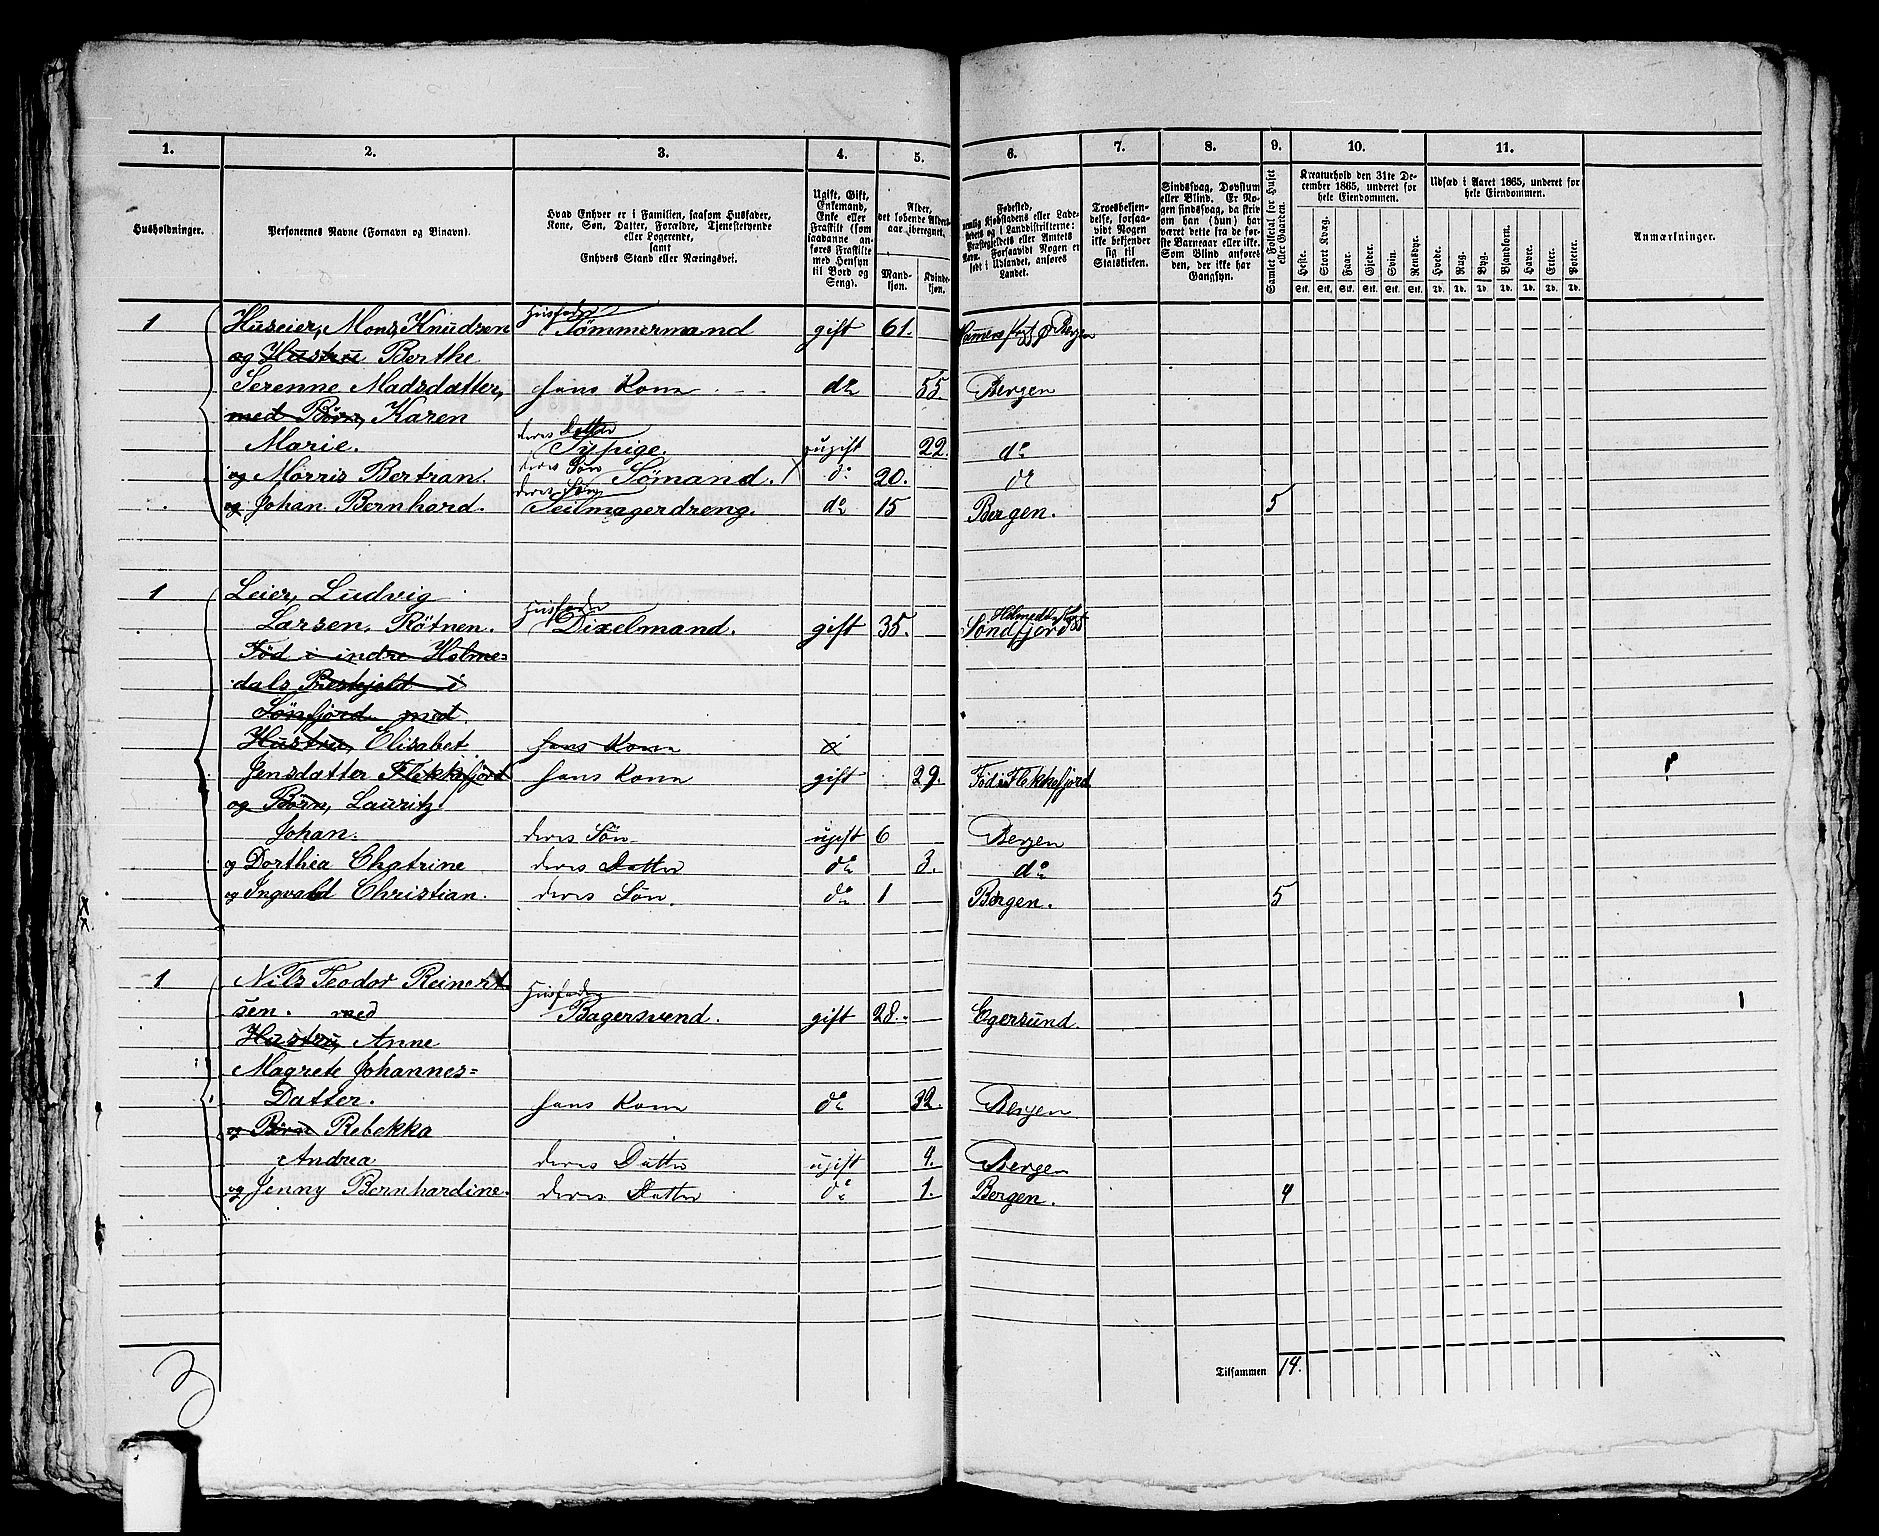 1. 2. 3. 4. 5. 6. 7. 8. 9. 10. 11.
Husholdninger.
Personernes Navne (Fornavn og Binavn).
Hvad Enhver er i Familien, saasom Husfader,
Kone, Søn, Datter, Forældre, Tjenestetyende
eller Logerende,
samt
Enhvers Stand eller Næringsvei.
Ugift, Gift,
Enkemand,
Enke eller
Fraskilt (som
saadanne an-
føres Fraskilte
med Hensyn
til Bord og
Seng).
Alder,
det løbende Alders-
aar iberegnet.
Mand-
kjøn.
Kvinde-
kjøn.
Fødested,
nemlig Kjøbstadens eller Lade-
stedets og i Landdistrikterne:
Præstegjeldets eller Amtets
Navn. Forsaavidt Nogen er
født i Udlandet, anføres
Landet.
Troesbekjen-
delse, forsaa-
vidt Nogen
ikke bekjender
sig til
Statskirken.
Sindssvag, Døvstum
eller Blind. Er No-
gen sindssvag, da skriv
om han (hun) har
været dette fra de før-
ste Barneaar eller ikke.
Som Blind anføres
der, der ikke har
Gangsyn.
Samlet Folketal for Huset
eller Gaarden.
Kreaturhold den 31te De-
cember 1865, underet for
hele Eiendommen.
Heste. Stort Kvæg. Faar. Gjeder. Svin. Rensdyr.
Stk. Stk. Stk. Stk. Stk. Stk.
Udsæd i Aaret 1865, underet for
hele Eiendommen.
Hvede. Rug. Byg. Blandkorn. Havre. Erter. Poteter.
Td. Td. Td. Td. Td. Td. Td.
Anmærkninger.
Husfader
1 Huseier, Mons Knudsen Tømmermand gift 61. Bergen
og Hustru Berthe
Serenne Madsdatter, hans Kone do 55. Bergen
med Børn, Karen
deres Datter
Marie. Sypige. ugift 22. do
deres Søn
og Morris Bertran. Sømand. X do 20. do
deres Søn
og Johan Bernhard. Seilmagerdreng. do 15 Bergen. 5
1 Leier, Ludvig
Husfader
Larsen, Røtnen. Dixelmand. gift 35. Søndfjord
Fød i indre Holme=
dals Prestjeld i
Sønfjord med
Hustru, Elisabet hans Kone
Jensdatter Flekkefjord hans Kone gift 29. Fød i Flekkefjord
og Børn, Lauritz
Johan. deres Søn ugift 6 Bergen
og Dorthea Chatrine deres Datter do 3. do
og Ingvald Christian. deres Søn. do 1 Bergen. 5
1 Nils Teodor Reinert
Husfader
sen. med Bagersvend. gift 28. Egersund. 1
Hustru, Anne
Magrete Johannes=
Datter. hans Kone do 32. Bergen
og Børn Rebekka
Andrea deres Datter ugift 4. Bergen
og Jenny Bernhardine. deres Datter do 1. Bergen. 4
Tilsammen 14.
3